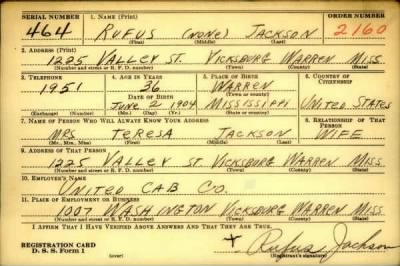 SERIAL NUMBER 1. NAME (Print) ORDER NUMBER
464 RUFUS (NONE) JACKSON 2160
(First) (Middle) (Last)
2. ADDRESS (Print)
1225 VALLEY ST. VICKSBURG WARREN MISS.
(Number and street or R. F. D. number) (Town) (County) (State)
3. TELEPHONE 4. AGE IN YEARS 5. PLACE OF BIRTH 6. COUNTRY OF CITIZENSHIP
1951 36 WARREN
DATE OF BIRTH (Town or county)
JUNE 2 1904 MISSISSIPPI UNITED STATES
(Exchange) (Number) (Mo.) (Day) (Yr.) (State or country)
7. NAME OF PERSON WHO WILL ALWAYS KNOW YOUR ADDRESS 8. RELATIONSHIP OF THAT PERSON
MRS TERESA JACKSON WIFE
(Mr., Mrs., Miss) (First) (Middle) (Last)
9. ADDRESS OF THAT PERSON
1225 VALLEY ST. VICKSBURG WARREN MISS.
(Number and street or R. F. D. number) (Town) (County) (State)
10. EMPLOYER'S NAME
UNITED CAB CO.
11. PLACE OF EMPLOYMENT OR BUSINESS
1007 WASHINGTON VICKSBURG WARREN MISS
(Number and street or R. F. D. number) (Town) (County) (State)
I AFFIRM THAT I HAVE VERIFIED ABOVE ANSWERS AND THAT THEY ARE TRUE.
REGISTRATION CARD
D. S. S. Form 1 x Rufus Jackson
(over) (Registrant's signature)